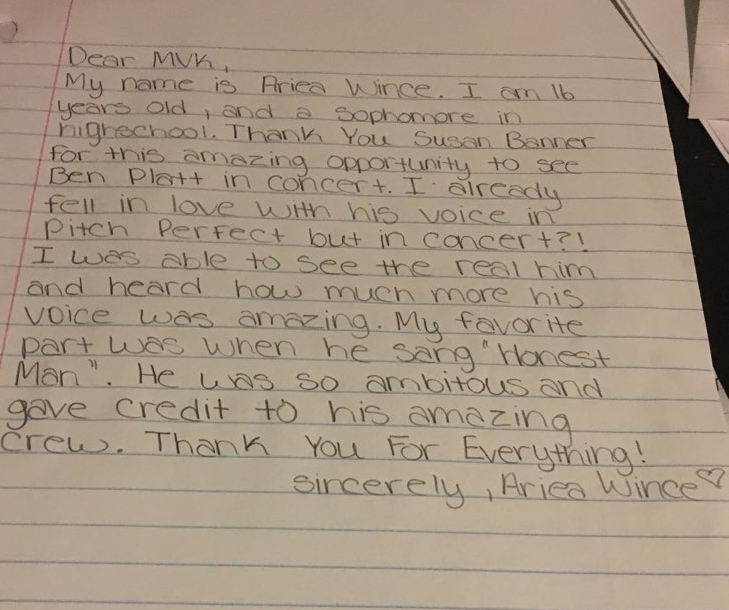 Dear MVK,
My name is Ariea Wince. I am 16
years old, and a sophomore in
highschool. Thank You Susan Banner
for this amazing opportunity to see
Ben Platt in concert. I already
fell in love with his voice in
Pitch Perfect but in concert?!
I was able to see the real him
and heard how much more his
voice was amazing. My favorite
part was when he sang "Honest
Man". He was so ambitous and
gave credit to his amazing
crew. Thank You For Everything!
Sincerely, Ariea Wince♡